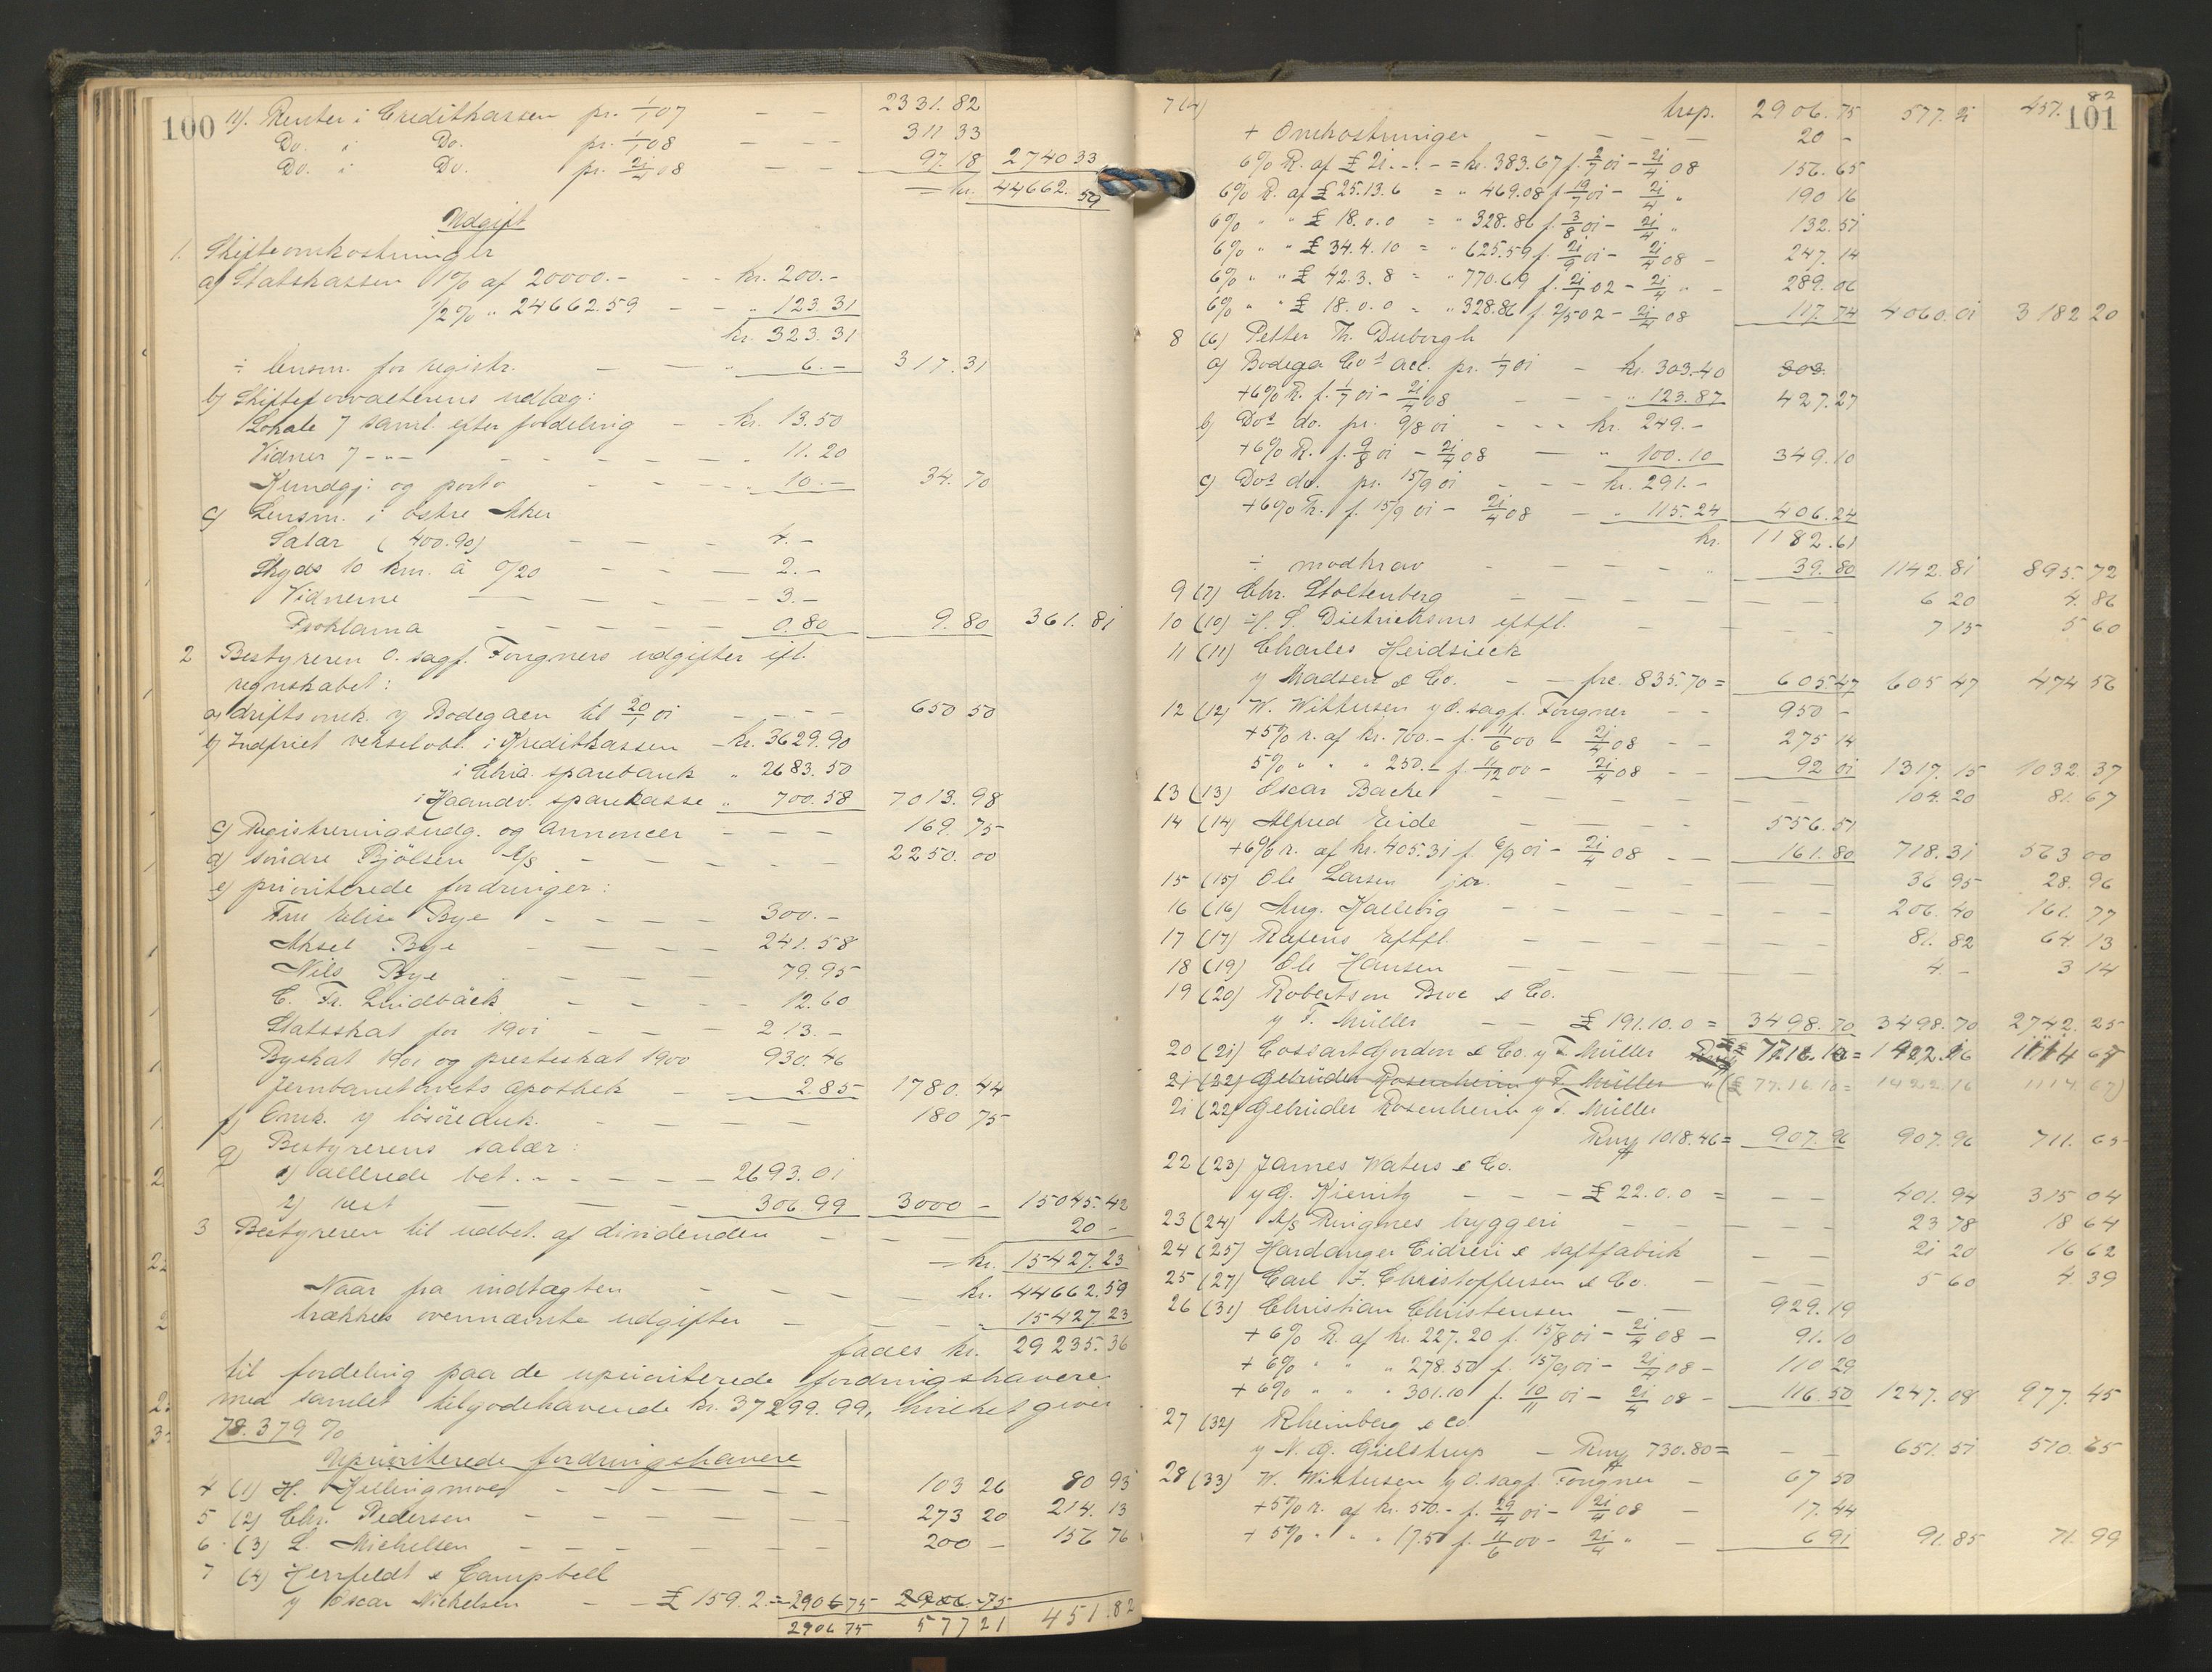 100
11). Renter i Creditkassen pr. 1/1 07 — — 2331.82
Do. i Do. pr. 1/1 08 — — 311 33
Do. i Do. pr. 21/4 08 — — 97.18 2740 33
= kr. 44662.59
Udgift
1. Skifteomkostninger
a) Statskassen 1% af 20000.- - - kr. 200.-
1/2% " 24662.59 - - " 123.31
kr. 323.31
÷ lensm. for registr. — — " 6.- 317.31
b) Skifteforvalterens udlæg:
Lokale 7 saml. efter fordeling - - kr. 13.50
Vidner 7 - " - - - - - - 11.20
Kundgj. og porto - - - - " 10.- 34.70
c) Lensm. i østre Aker
Salær (400.90) - - - - 4.-
Skyds 10 km. à 0/20 - - - 2.-
Vidnerne - - - - 3.-
Proklama - - - - - 0.80 9.80 361.81
2 Bestyreren O. sagf. Fougners udgifter ifl.
regnskabet:
a) driftsomk. v Bodegaen til 20/1 01 - - - - 650 50
b) Indfriet vekselobl. i Kreditkassen - kr. 3629.90
i Chra. sparebank " 2683.50
i Haandv. sparekasse " 700.58 7013.98
c) Registreringsudg. og annoncer - - - 169.75
d) søndre Bjølsen A/S - - - - - 2250.00
e) prioriterede fordringer:
Fru Elise Bye - - - - 300.-
Aksel Bye - - - - 241.58
Nils Bye - - - - 79.95
C. Fr. Lindbäck - - - - 12.60
Statsskat for 1901 - - - 213.-
Byskat 1901 og presteskat 1900 930.46
Jernbanetorvets apothek - - 2.85 1780.44
f) Omk. v løsøreauk. - - - - 180 75
g) Bestyrerens salær:
1) allerede bet. - - - - - 2693.01
2) rest - - - - 306.99 3000 - 15045.42
3 Bestyreren til udbet. af dividenden - - 20 -
= kr. 15427.23
Naar fra indtægten - - - - kr. 44662.59
trækkes ovennævnte udgifter - - " 15427.23
fades kr. 29235.36
til fordeling paa de uprioriterede fordringshavere
med samlet tilgodehavende kr. 37299.99, hvilket giver
78.379 %
Uprioriterede fordringshavere
4 (1) H. Killingmoe - - - - - 103 26 80 93
5 (2) Chr. Pedersen - - - - - 273 20 214.13
6 (3) L. Michelsen - - - - - 200 - 156 76
7 (4) Herrfeldt & Campbell
v Oscar Nickelsen - - £ 159.2. = 2906 75 2906.75
2906 75 577 21 451.82
101
7 (4) trsp. 2906.75 577.21 451.82
+ Omkostninger - - - - 20 -
6% R. af £ 21. - . - = kr. 383.67 f. 2/7 01 - 21/4 08 156.65
6% R. af £ 25.13.6 = " 469.08 f. 19/7 01 - 21/4 " 190 16
6% " " £ 18.0.0 = " 328.86 f. 3/8 01 - 21/4 " 132.51
6% " " £ 34.4.10 = " 625.59 f. 21/9 01 - 21/4 08 - 247.14
6% " " £ 42.3.8 = " 770.69 f. 21/1 02 - 21/4 " - 289.06
6% " " £ 18.0.0 = " 328.86 f. 2/5 02 - 21/4 08 117.74 4060.01 3182 20
8 (6) Petter Th. Duborgh
a) Bodega Co's acc. pr. 1/7 01 - kr. 303.40 303.
+ 6% R. f. 1/7 01 - 21/4 08 - - - " 123.87 427.27
b) Do's do. pr. 9/8 01 - - - kr. 249.-
+ 6% R. f. 9/8 01 - 21/4 08 — " 100.10 349.10
c) Do's do. pr. 15/9 01 - - - kr. 291.-
+ 6% R. f. 15/9 01 - 21/4 08 - " 115.24 406.24
kr. 1182.61
÷ modkrav - - - - " 39.80 1142.81 895.72
9 (7) Chr. Stoltenberg - - - - - 6 20 4.86
10 (10) H. S. Dietrichsons eftfl. - - - 7 15 5 60
11 (11) Charles Heidsieck
v Madsen & Co. - - frc. 835.70 = 605.47 605 47 474 56
12 (12) W. Wittusen v O. sagf. Fougner - - 950 -
+ 5% r. af kr. 700.- f. 11/6 00 - 21/4 08 - - 275 14
5% " " " 250.- f. 11/12 00 - 21/4 08 - - 92 01 1317.15 1032.37
13 (13) Oscar Backe - - - - - 104.20 81.67
14 (14) Alfred Eide - - - - 556.51
+ 6% r. af kr. 405.31 f. 6/9 01 - 21/4 08 - - 161.80 718.31 563 00
15 (15) Ole Larsen jor. - - - - - 36 95 28.96
16 (16) Aug. Kallevig - - - - - 206.40 161.77
17 (17) Rafens Eftfl. - - - - - 81.82 64.13
18 (19) Ole Hansen - - - - - 4.- 3 14
19 (20) Robertson Broe & Co.
v F. Müller - - £ 191.10.0 = 3498.70 3498.70 2742.25
20 (21) Cossart Gordon & Co. v F. Müller £ 77.16.10 = 1422.16 1114 67
21 (22) Gebrüder Rosenheim v F. Müller (£ 77.16.10 = 1422.16 1114 67)
21 (22) Gebrüder Rosenheim v F. Müller
Rmk 1018.46 = 907.96 907.96 711.65
22 (23) James Waters & Co.
v G. Kienitz - - - £ 22.0.0 = - - 401.94 315 04
23 (24) A/S Ringnes bryggeri - - - - 23 78 18 64
24 (25) Hardanger Cidreri & saftfabrik - - 21 20 16 62
25 (27) Carl F. Christoffersen & Co. - - - 5 60 4.39
26 (31) Christian Christensen - - 929.19
+ 6% R. af kr. 227.20 f. 15/8 01 - 21/4 08 - 91.10
+ 6% " " " 278.50 f. 15/9 01 - 21/4 08 - 110 29
+ 6% " " " 301.10 f. 10/11 01 - 21/4 08 - 116.50 1247.08 977.45
27 (32) Rheinberg & Co
v N. G. Gielstrup - Rmk 730.80 = - - 651.51 510.65
28 (33) W. Wittusen v O. sagf. Fougner - 67 50
+ 5% r. af kr. 50.- f. 29/4 01 - 21/4 08 - 17.44
+ 5% " " " 17.50 f. 11/6 00 - 21/4 " - 6 91 91.85 71.99